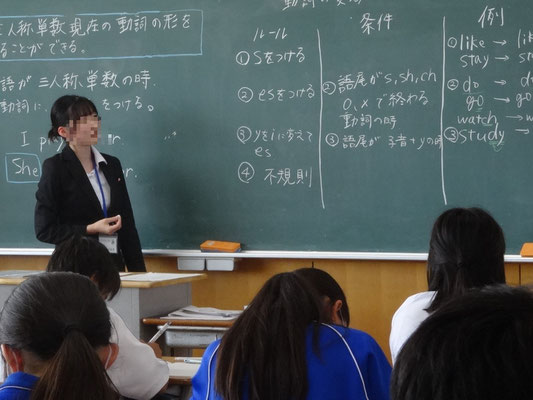 三人称単数現在の動詞の形を
ることができる。
語が三人称、単数の時、
動詞に
をつける。
I
She
ルール
①sをつける
②esをつける
③yをiに変えて
es
④ 不規則
条件
②語尾がs,sh,ch
o,xで終わる
動詞の時
③語尾が子音+yの時
例
①like→
stay→
②do→
go→
watch→
③study→